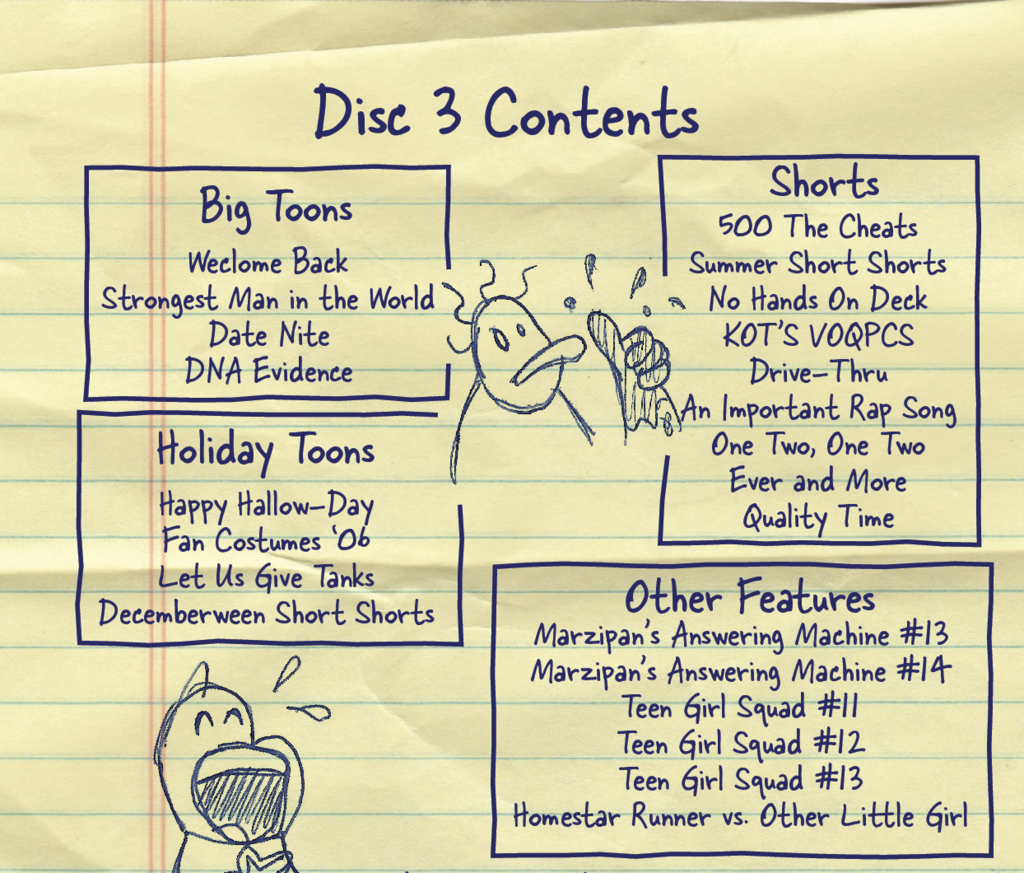 Disc 3 Contents
Big Toons
Weclome Back
Strongest Man in the World
Date Nite
DNA Evidence
Holiday Toons
Happy Hallow-Day
Fan Costumes '06
Let Us Give Tanks
Decemberween Short Shorts
Shorts
500 The Cheats
Summer Short Shorts
No Hands On Deck
KOT'S VOQPCS
Drive-Thru
An Important Rap Song
One Two, One Two
Ever and More
Quality Time
Other Features
Marzipan's Answering Machine #13
Marzipan's Answering Machine #14
Teen Girl Squad #11
Teen Girl Squad #12
Teen Girl Squad #13
Homestar Runner vs. Other Little Girl